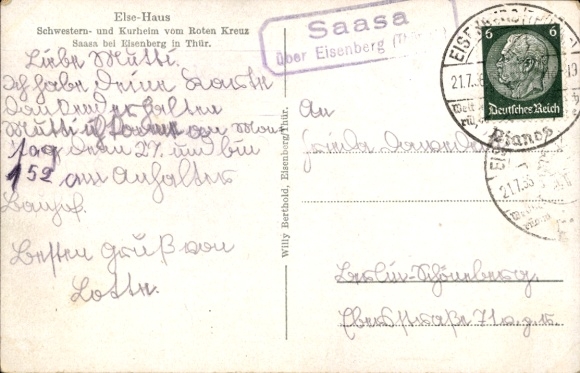 Else-Haus
Schwestern- und Kurheim vom Roten Kreuz
Saasa bei Eisenberg in Thür.
Liebe Mutti.
Ich habe Deine Karte
dankend erhalten
Mutti ich komme am Mon
tag dem 27. und bin
1 52 am Anhalter
Banhof.
Besten Gruß von
Lotte.
Willy Berthold, Eisenberg/Thür.
Saasa
über Eisenberg (Thür.)
6 6
Deutsches Reich
EISENBERG (THÜR
21.7.
Pianos
21.7.
An
Frieda
Berlin-Schöneberg.
Eberstraße 71